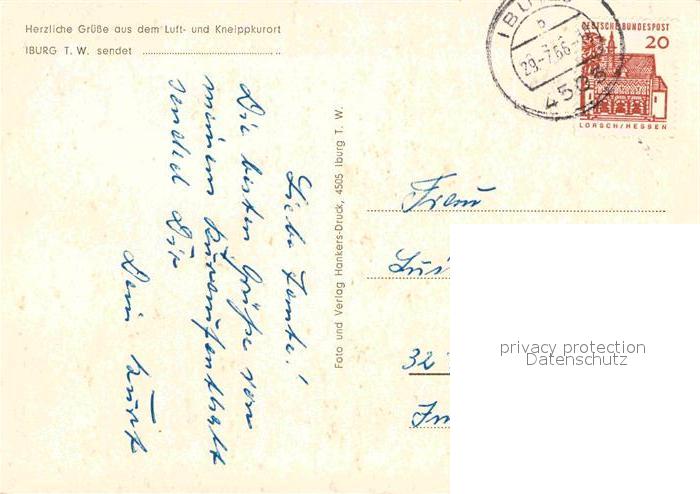 Herzliche Grüße aus dem Luft- und Kneippkurort
IBURG T. W. sendet
Liebe Tante!
Die besten Grüße von
meinem Kuraufenthalt
sendet Dir
Dein Kurt
Foto und Verlag Hankers-Druck, 4505 Iburg T. W.
IBURG
29.-7.66
4505
DEUTSCHE BUNDESPOST
20
LORSCH/HESSEN
Frau
32
privacy protection
Datenschutz